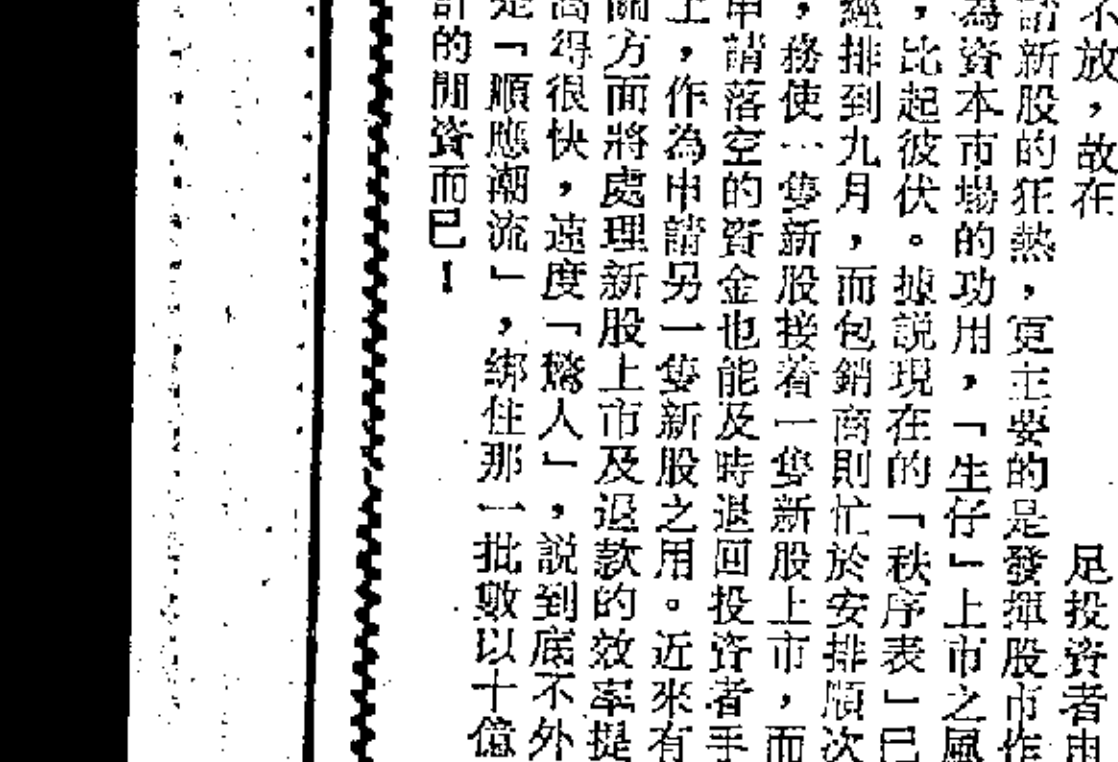 不放，故在　足投資者申
請新股的狂熱，更主要的是發揮股市作
為資本市場的功用，「生仔」上市之風
，比起彼伏。據說現在的「秩序表」已
經排到九月，而包銷商則忙於安排順次
，務使一隻新股接着一隻新股上市，而
申請落空的資金也能及時退回投資者手
上，作為申請另一隻新股之用。近來有
關方面將處理新股上市及退款的效率提
高得很快，速度「驚人」，說到底不外
是「順應潮流」，綁住那一批數以十億
計的閒資而已！